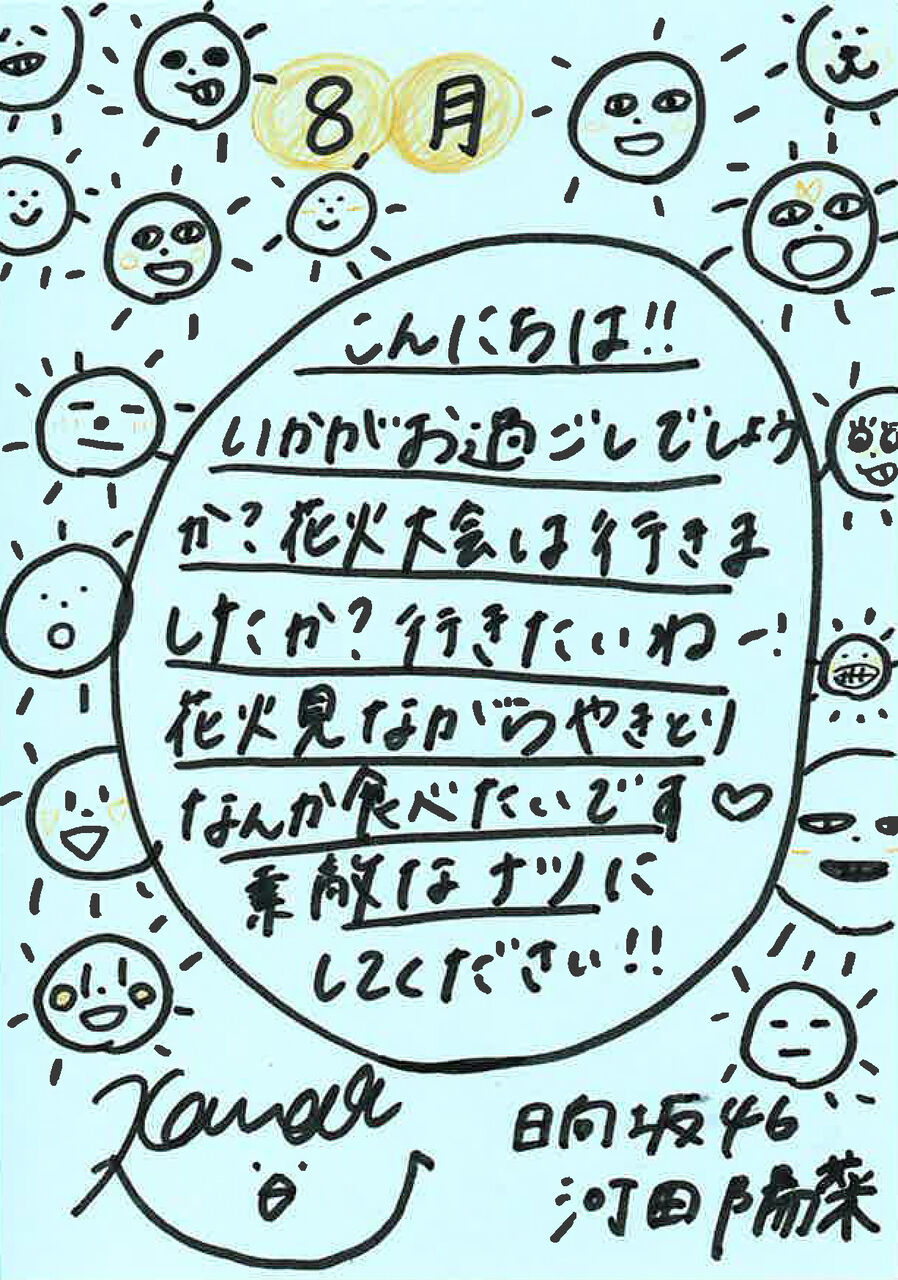 8月
こんにちは!!
いかがお過ごしでしょう
か?花火大会は行きま
したか?行きたいねー!
花火見ながらやきとり
なんか食べたいです♡
素敵なナツに
してください!!
日向坂46
河田陽菜